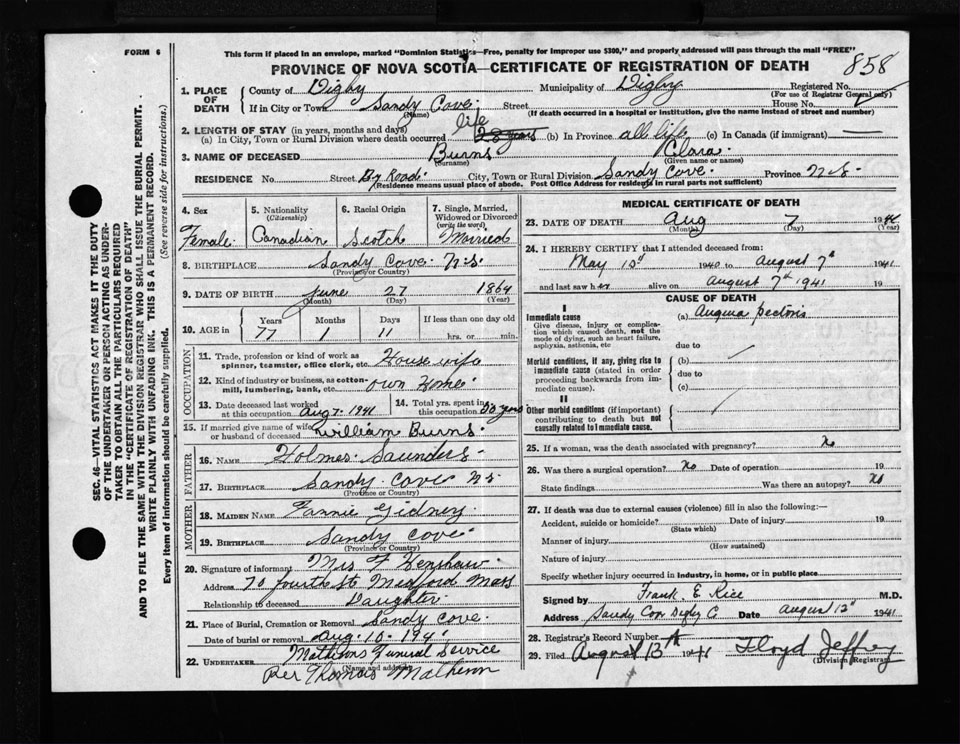 FORM 6
This form if placed in an envelope, marked "Dominion Statistics—Free, penalty for improper use $300," and properly addressed will pass through the mail "FREE"
PROVINCE OF NOVA SCOTIA—CERTIFICATE OF REGISTRATION OF DEATH
858
SEC. 46—VITAL STATISTICS ACT MAKES IT THE DUTY
OF THE UNDERTAKER OR PERSON ACTING AS UNDER-
TAKER TO OBTAIN ALL THE PARTICULARS REQUIRED
IN THE "CERTIFICATE OF REGISTRATION OF DEATH"
AND TO FILE THE SAME WITH THE DIVISION REGISTRAR WHO SHALL ISSUE THE BURIAL PERMIT.
WRITE PLAINLY WITH UNFADING INK. THIS IS A PERMANENT RECORD.
Every item of information should be carefully supplied. (See reverse side for instructions.)
1. PLACE OF DEATH
County of Digby Municipality of Digby Registered No.
(For use of Registrar General only)
If in City or Town Sandy Cove. Street House No.
(Name) (If death occurred in a hospital or institution, give the name instead of street and number)
2. LENGTH OF STAY (in years, months and days)
(a) In City, Town or Rural Division where death occurred life 20 years (b) In Province all life (c) In Canada (if immigrant)
3. NAME OF DECEASED Burns Clara.
(Surname) (Given name or names)
RESIDENCE No. Street By Road. City, Town or Rural Division Sandy Cove. Province N.S.
(Residence means usual place of abode. Post Office Address for residents in rural parts not sufficient)
4. Sex Female.
5. Nationality (Citizenship) Canadian
6. Racial Origin Scotch
7. Single, Married, Widowed or Divorced (write the word) Married
8. BIRTHPLACE Sandy Cove. N.S.
(Province or Country)
9. DATE OF BIRTH June 27 1864
(Month) (Day) (Year)
10. AGE in Years 77 Months 1 Days 11 If less than one day old hrs. or min.
OCCUPATION
11. Trade, profession or kind of work as spinner, teamster, office clerk, etc. House wife
12. Kind of industry or business, as cotton-mill, lumbering, bank, etc. own Home
13. Date deceased last worked at this occupation Aug 7. 1941
14. Total yrs. spent in this occupation 50 years
15. If married give name of wife or husband of deceased William Burns.
FATHER
16. NAME Holmes Saunders.
17. BIRTHPLACE Sandy Cove NS
(Province or Country)
MOTHER
18. MAIDEN NAME Fannie Gidney.
19. BIRTHPLACE Sandy Cove
(Province or Country)
20. Signature of informant Mrs F Henshaw
Address 70 Fourth St Medford Mass
Relationship to deceased Daughter
21. Place of Burial, Cremation or Removal Sandy Cove.
Date of burial or removal Aug. 10. 194
22. UNDERTAKER Mathesons Funeral Service
(Name and address)
Per Thomas
MEDICAL CERTIFICATE OF DEATH
23. DATE OF DEATH Aug 7 1941
(Month) (Day) (Year)
24. I HEREBY CERTIFY that I attended deceased from:
May 10th 1940 to August 7th 1941
and last saw her alive on August 7th 1941 19
CAUSE OF DEATH
I
Immediate cause
Give disease, injury or complication which caused death, not the mode of dying, such as heart failure, asphyxia, asthenia, etc
(a) Angina Pectoris
due to
Morbid conditions, if any, giving rise to immediate cause (stated in order proceeding backwards from immediate cause).
(b)
due to
(c)
II
Other morbid conditions (if important) contributing to death but not causally related to immediate cause.
25. If a woman, was the death associated with pregnancy? No
26. Was there a surgical operation? No Date of operation 19
State findings Was there an autopsy? No
27. If death was due to external causes (violence) fill in also the following:—
Accident, suicide or homicide? Date of injury 19
(State which)
Manner of injury
(How sustained)
Nature of injury
Specify whether injury occurred in industry, in home, or in public place
Signed by Frank E Rice M.D.
Address Sandy Cove Digby C Date August 12th 1941
28. Registrar's Record Number
29. Filed August 13th 1941 Floyd Jeffrey
(Division Registrar)